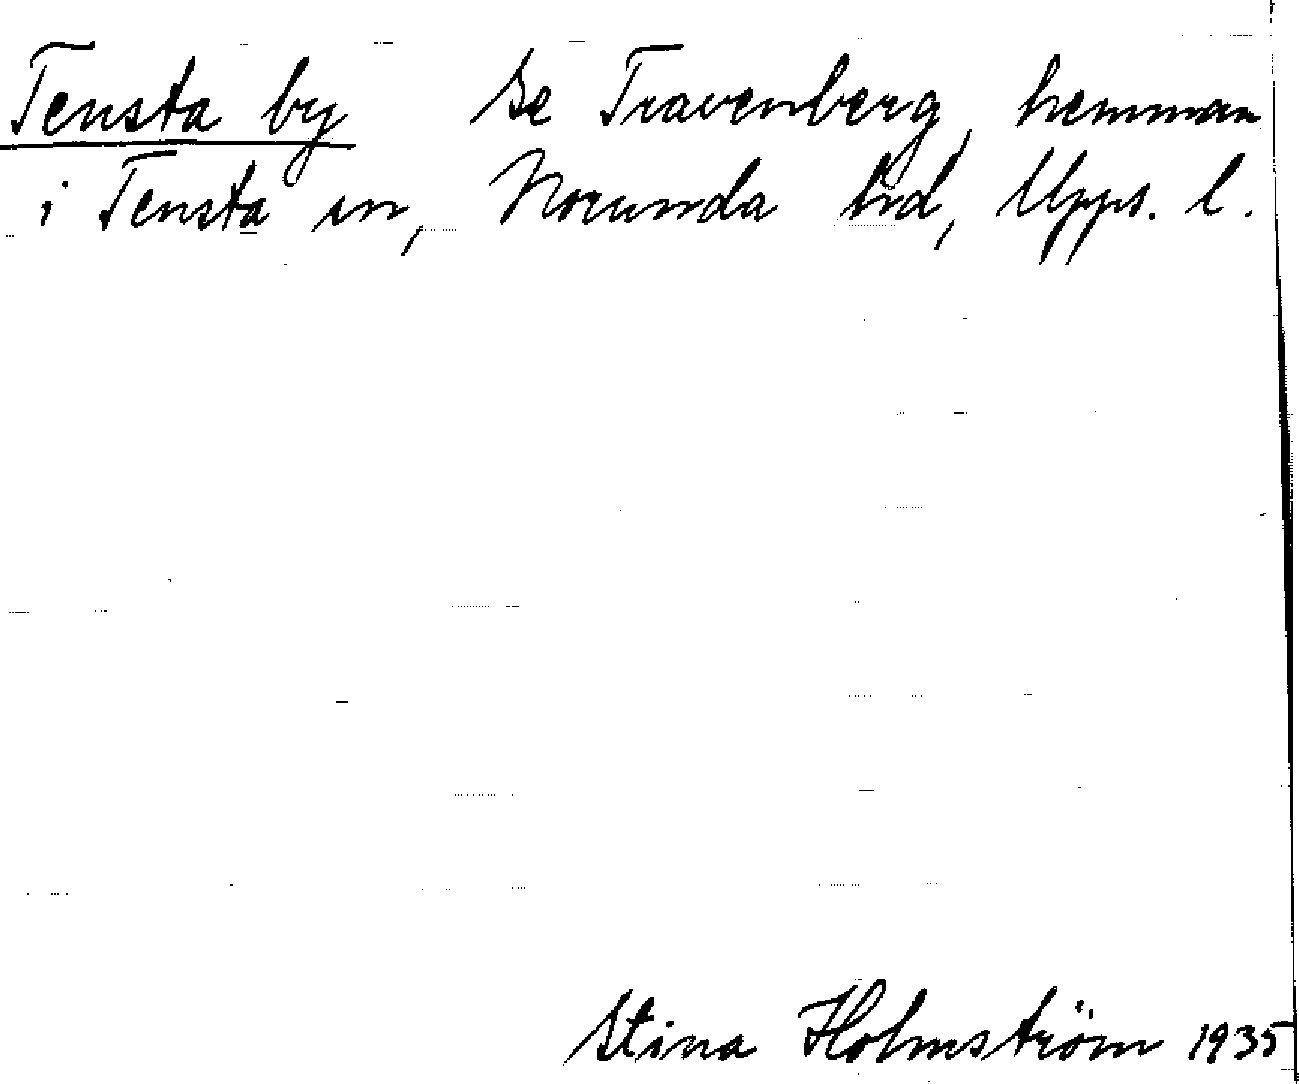 Tensta by Se Travenberg, hemman
i Tensta sn, Norunda hd, Upps. l.
Stina Holmström 1935